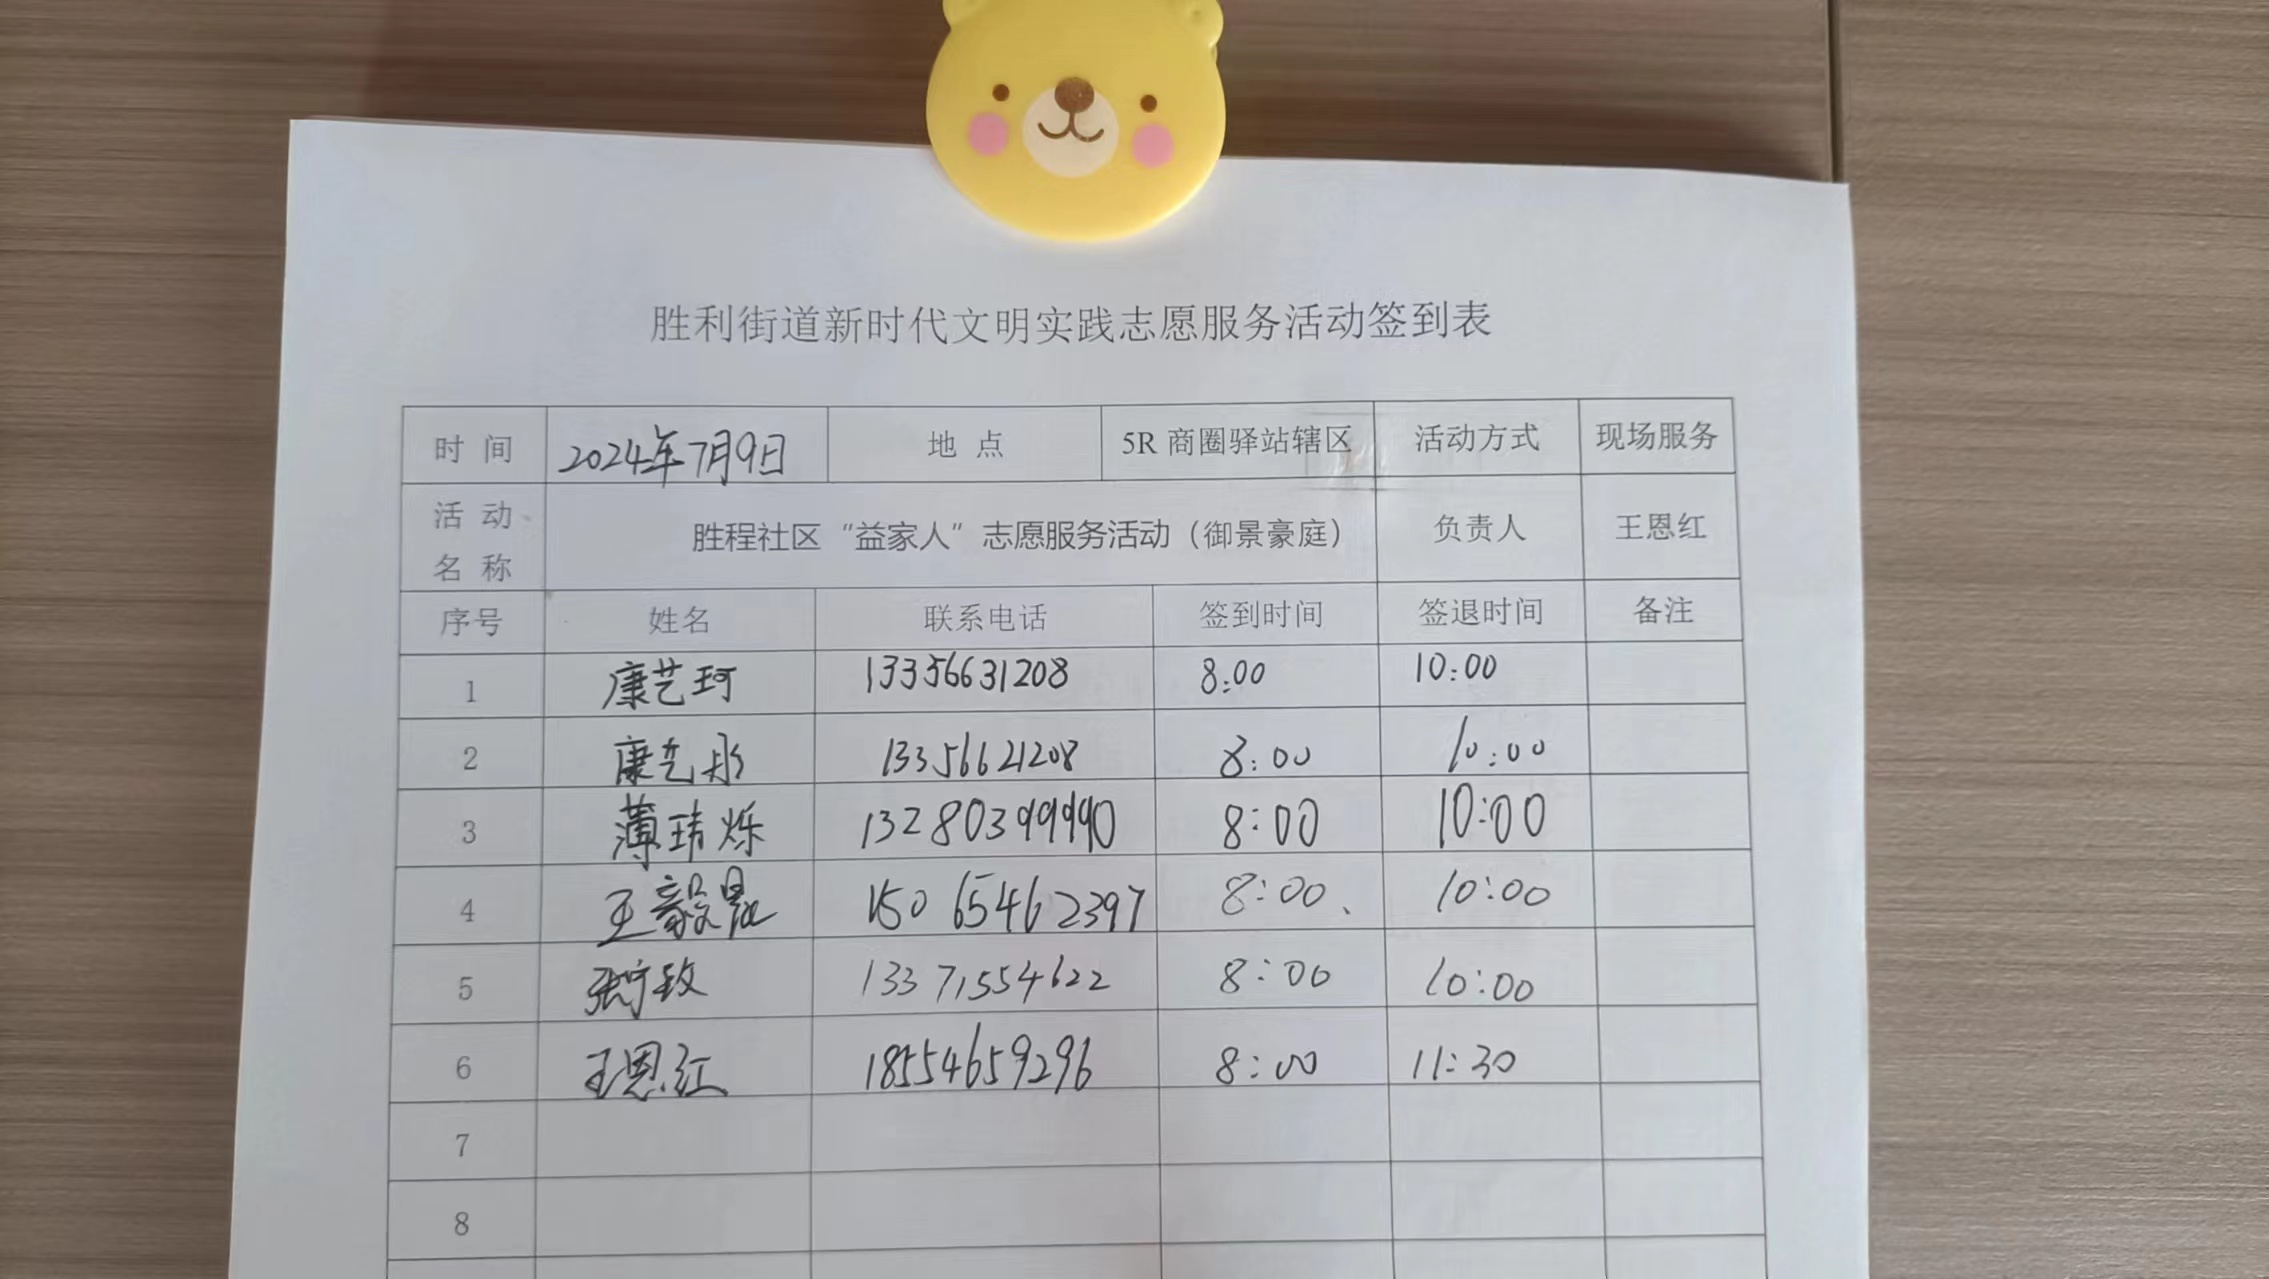 胜利街道新时代文明实践志愿服务活动签到表
时 间 2024年7月9日 地 点 5R 商圈驿站辖区 活动方式 现场服务
活 动
名 称 胜程社区“益家人”志愿服务活动（御景豪庭） 负责人 王恩红
序号 姓名 联系电话 签到时间 签退时间 备注
1 康艺珂 13356631208 8:00 10:00
2 康艺彤 13356621208 8:00 10:00
3 薄玮烁 13280399990 8:00 10:00
4 王毅晟 15065462397 8:00、 10:00
5 13371554622 8:00 10:00
6 王恩红 18554659296 8:00 11:30
7
8